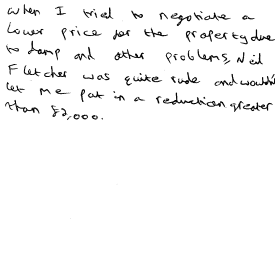 when I tried to negotiate a
lower price for the property due
to damp and other problems, Neil
Fletcher was quite rude and wouldn't
let me put in a reduction greater
than £2,000.